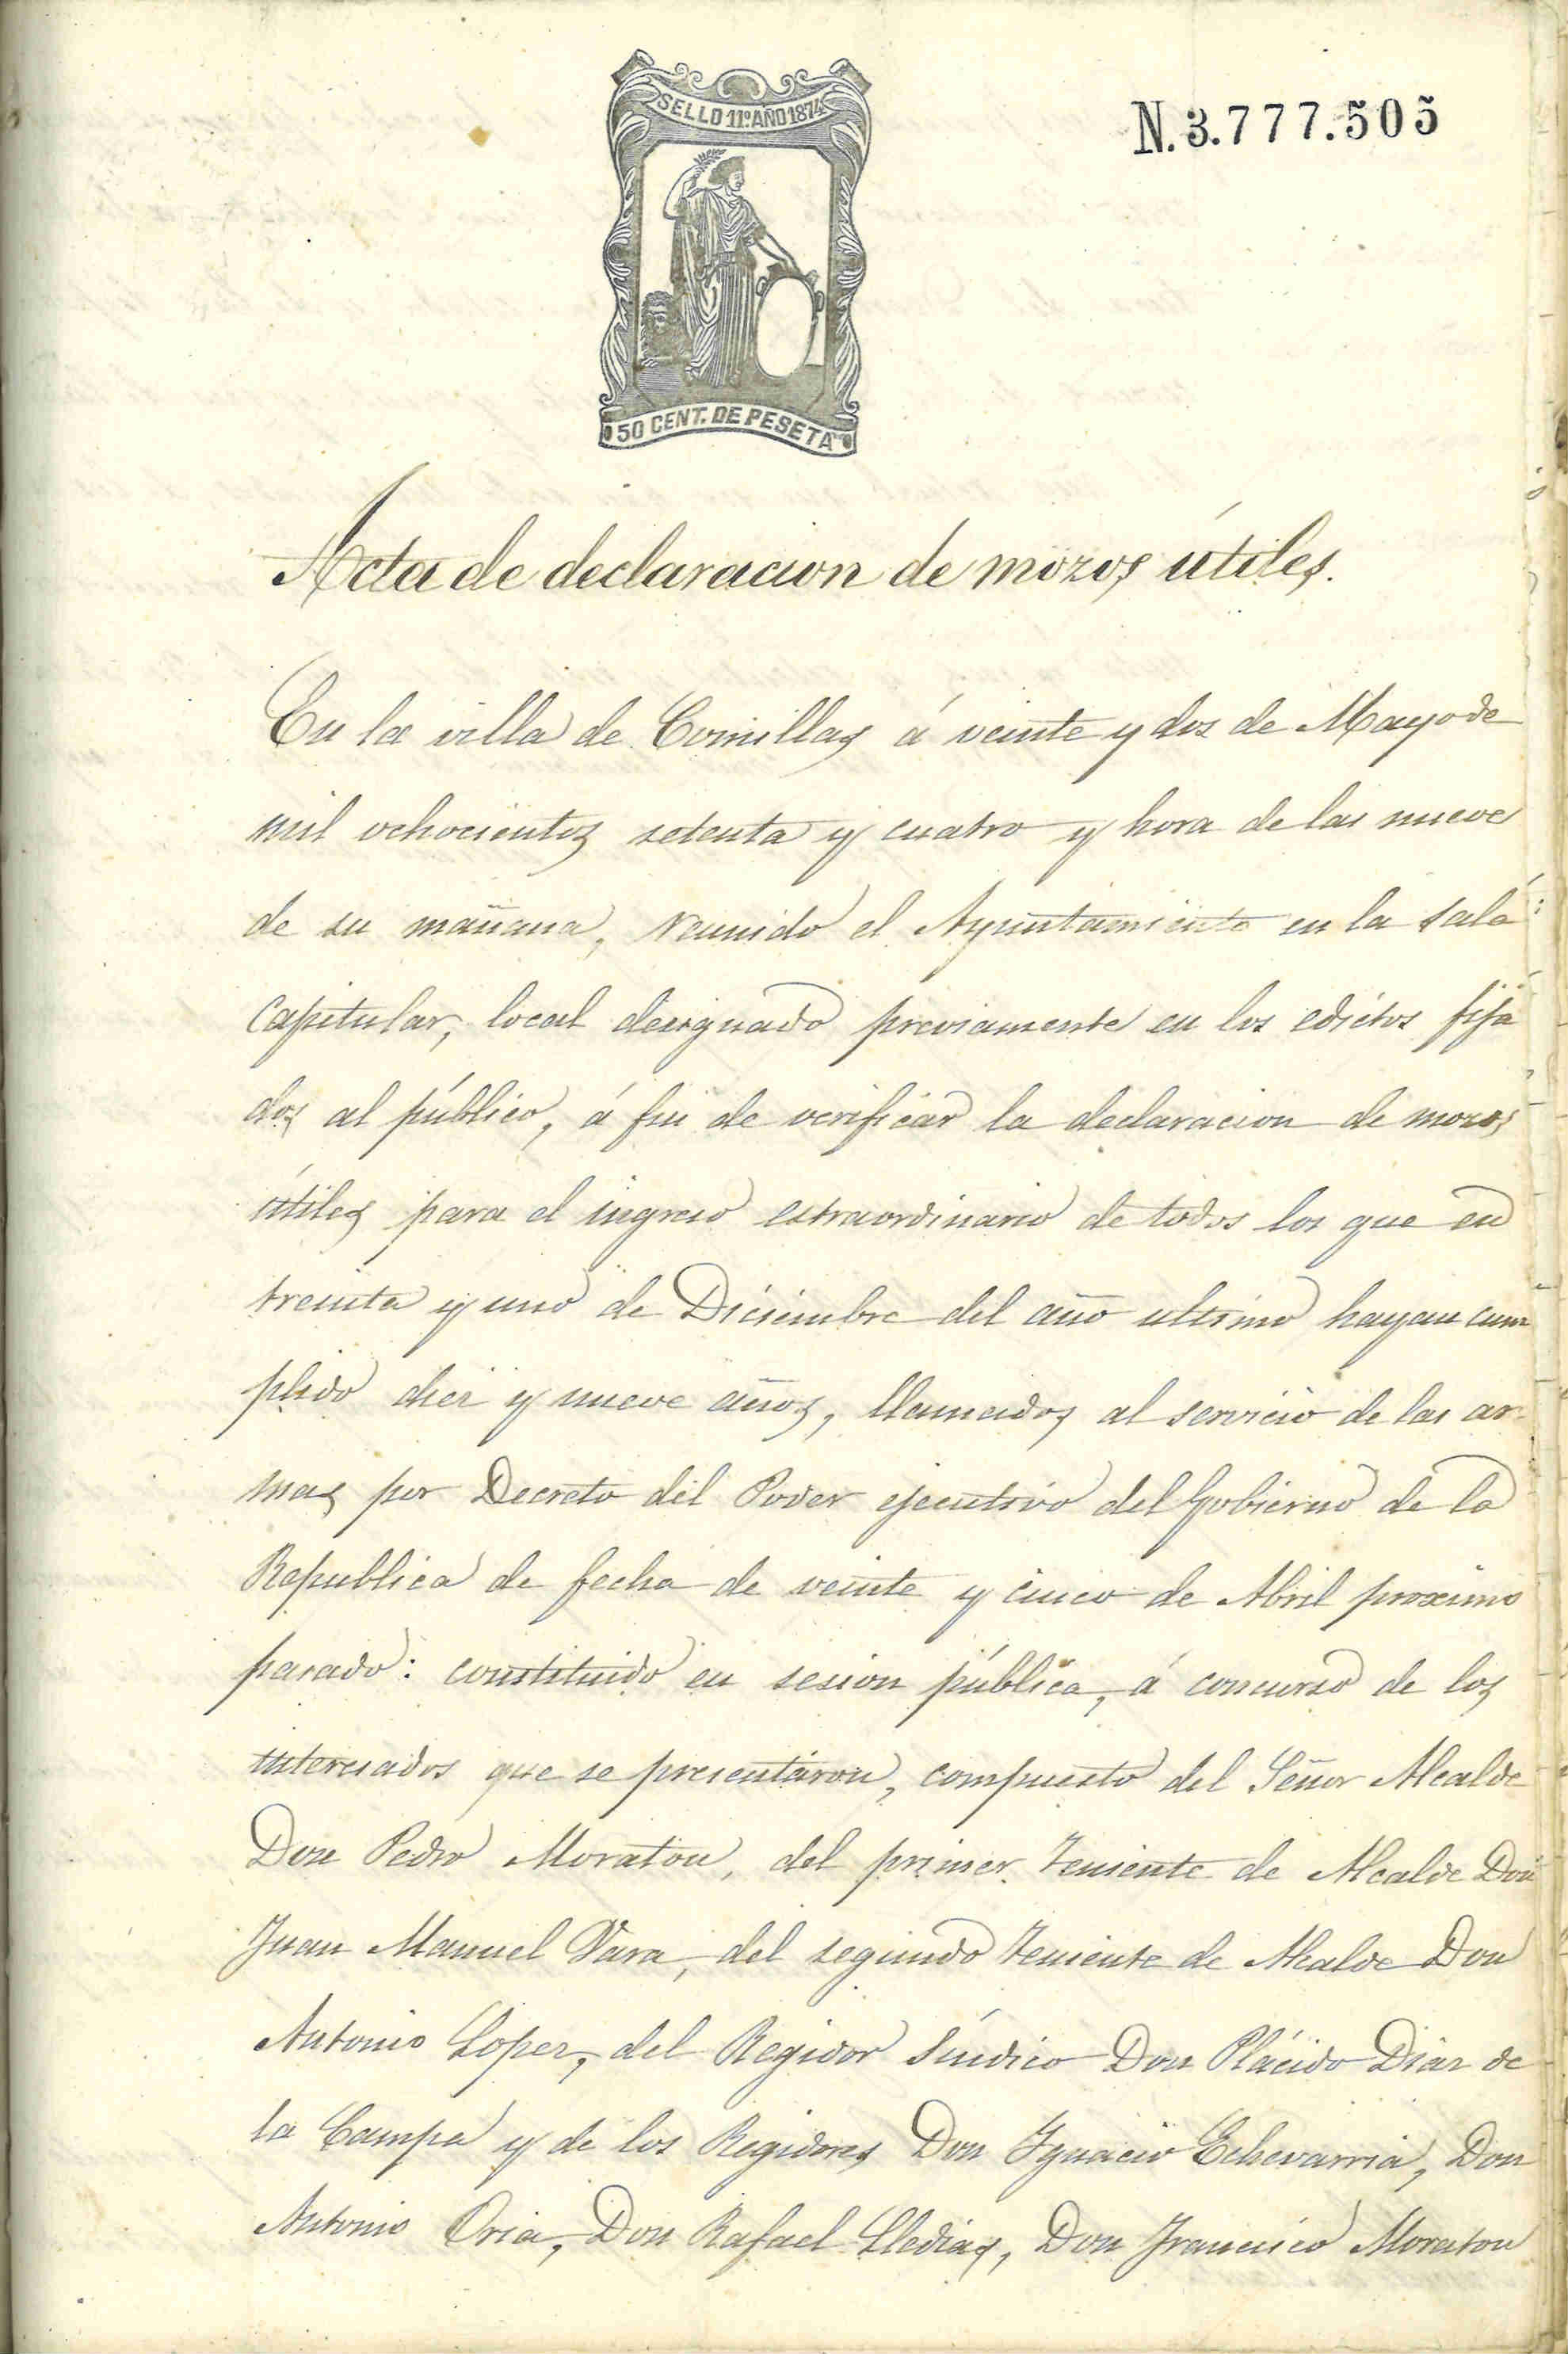 SELLO 11º AÑO 1874
N. 3.777.505
50 CENT. DE PESETA
Acta de declaracion de mozos útiles.
En la villa de Comillas á veinte y dos de Mayo de
mil ochocientos setenta y cuatro y hora de las nueve
de su mañana, reunido el Ayuntamiento en la sala
Capitular, local designado previamente en los edictos fija
dos al público, á fin de verificar la declaracion de mozos
útiles para el ingreso estraordinario de todos los que en
treinta y uno de Diciembre del año ultimo hayan cum
plido diez y nueve años, llamados al servicio de las ar-
mas por Decreto del Poder ejecutivo del Gobierno de la
Republica de fecha de veinte y cinco de Abril proximo
pasado: constituido en sesion pública, á concurso de los
interesados que se presentaron, compuesto del Señor Alcalde
Don Pedro Moraton, del primer Teniente de Alcalde Don
Juan Manuel Vara, del segundo Teniente de Alcalde Don
Antonio Lopez, del Regidor Síndico Don Plácido Diaz de
la Campa y de los Regidores Don Ygnacio Echevarria, Don
Antonio Oria, Don Rafael Lledias, Don Francisco Moraton